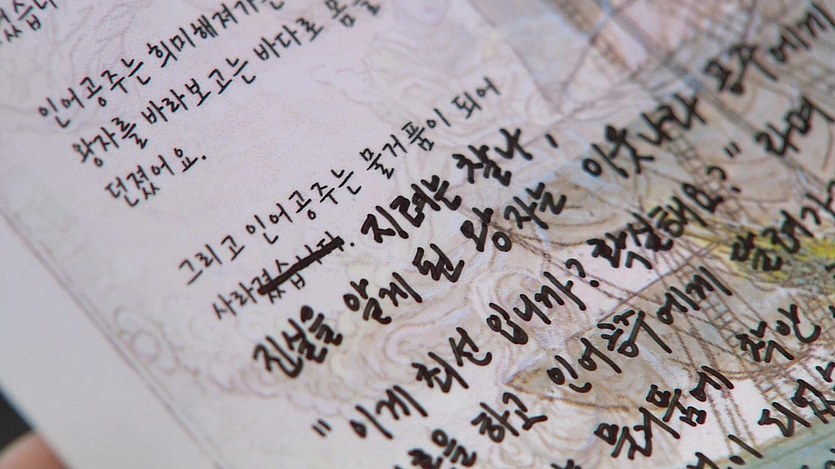 었습니다
인어공주는 희미해져가는
왕자를 바라보고는 바다로 몸을
던졌어요.
그리고 인어공주는 물거품이 되어
사라졌습니다. 지려는 찰나,
진실을 알게 된 왕자는 이웃나라 공주에게
"이게 최선 입니까? 확실해요?" 라며
을 하고 인어공주에게 달려가
물거품에 착안
되었